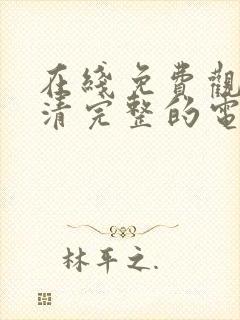 在綫免費觀
清完整的電
林平之.